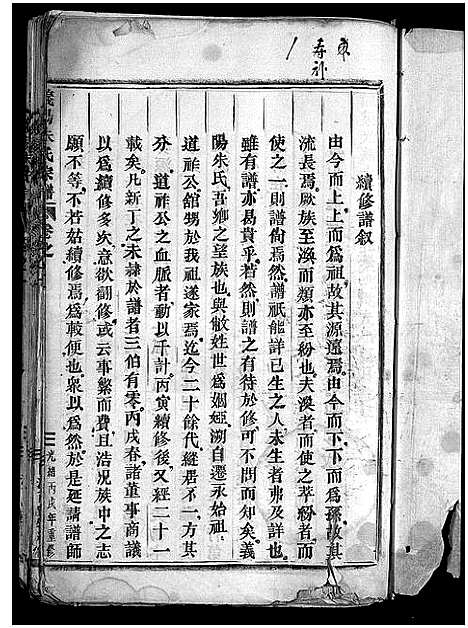 續修譜叙
由今而上上而爲祖故其源遠焉由今而下下而爲孫故其
流長焉厥族至渙而頻亦至紛也夫渙者而使之萃紛者而
使之一則譜尙焉然譜祇能詳已生之人未生者弗及詳也
雖有譜亦曷貴乎若然則譜之有待於修可不問而知矣義
陽朱氏吾鄉之望族也與敝姓世爲姻婭溯自遷永始祖
道祚公館甥於我祖遂家焉迄今二十餘代縱居不一方其
分 道祚公之血脈者動以千計丙寅續修後又經二十一
載矣凡新丁之未隷於譜者三伯有零丙戌春諸董事商議
以爲續修多矣意欲翻修或云事繁而費且浩况族中之志
願不等不若姑續修焉爲較便也衆以爲然於是延請譜師
朱氏宗譜
卷之
光緒丙戌年重修